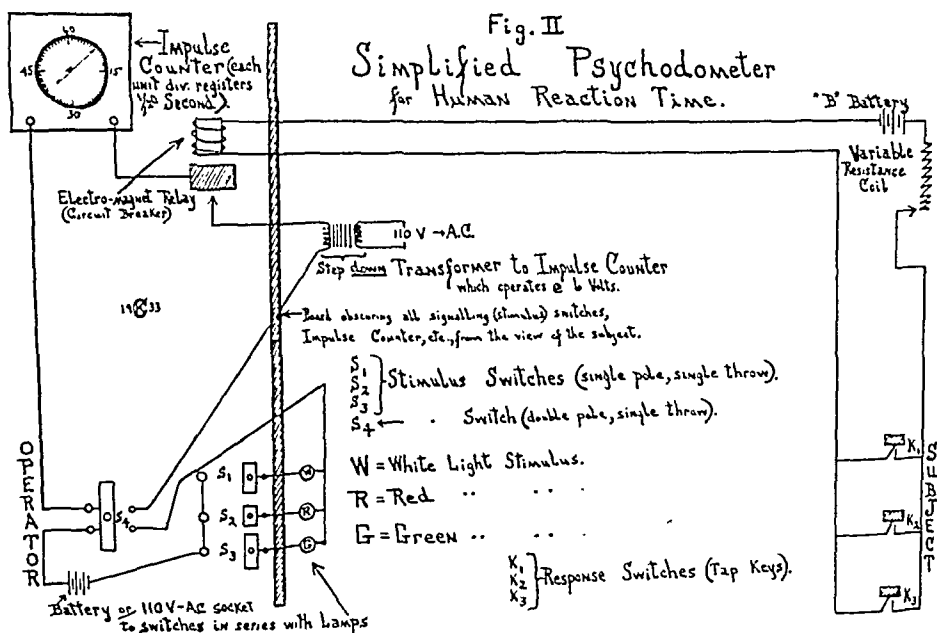 Fig. II
Simplified Psychodometer
for Human Reaction Time.
60
45
15
30
Impulse
Counter (each
unit div. registers
Second).
"B" Battery
Variable
Resistance
Coil
Electro-magnet Relay
(Circuit Breaker)
110 V → A.C.
Step down Transformer to Impulse Counter
which operates @ 6 Volts.
19 33
Board obscuring all signalling (stimulus) switches,
Impulse Counter, etc., from the view of the subject.
S1
S2
S3
Stimulus Switches (single pole, single throw).
S4 ← " Switch (double pole, single throw).
W = White Light Stimulus.
R = Red " " "
G = Green " " "
K1
K2
K3
Response Switches (Tap Keys).
OPERATOR
S4
S1
S2
S3
W
R
G
K1
K2
K3
SUBJECT
Battery or 110V-AC socket
to switches in series with Lamps